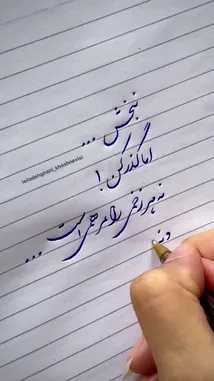 نبخش ...
اما گذر کن !
نه هر زخمی را مرهمی است ...
و نه
leiladehghani_khoshnevisi